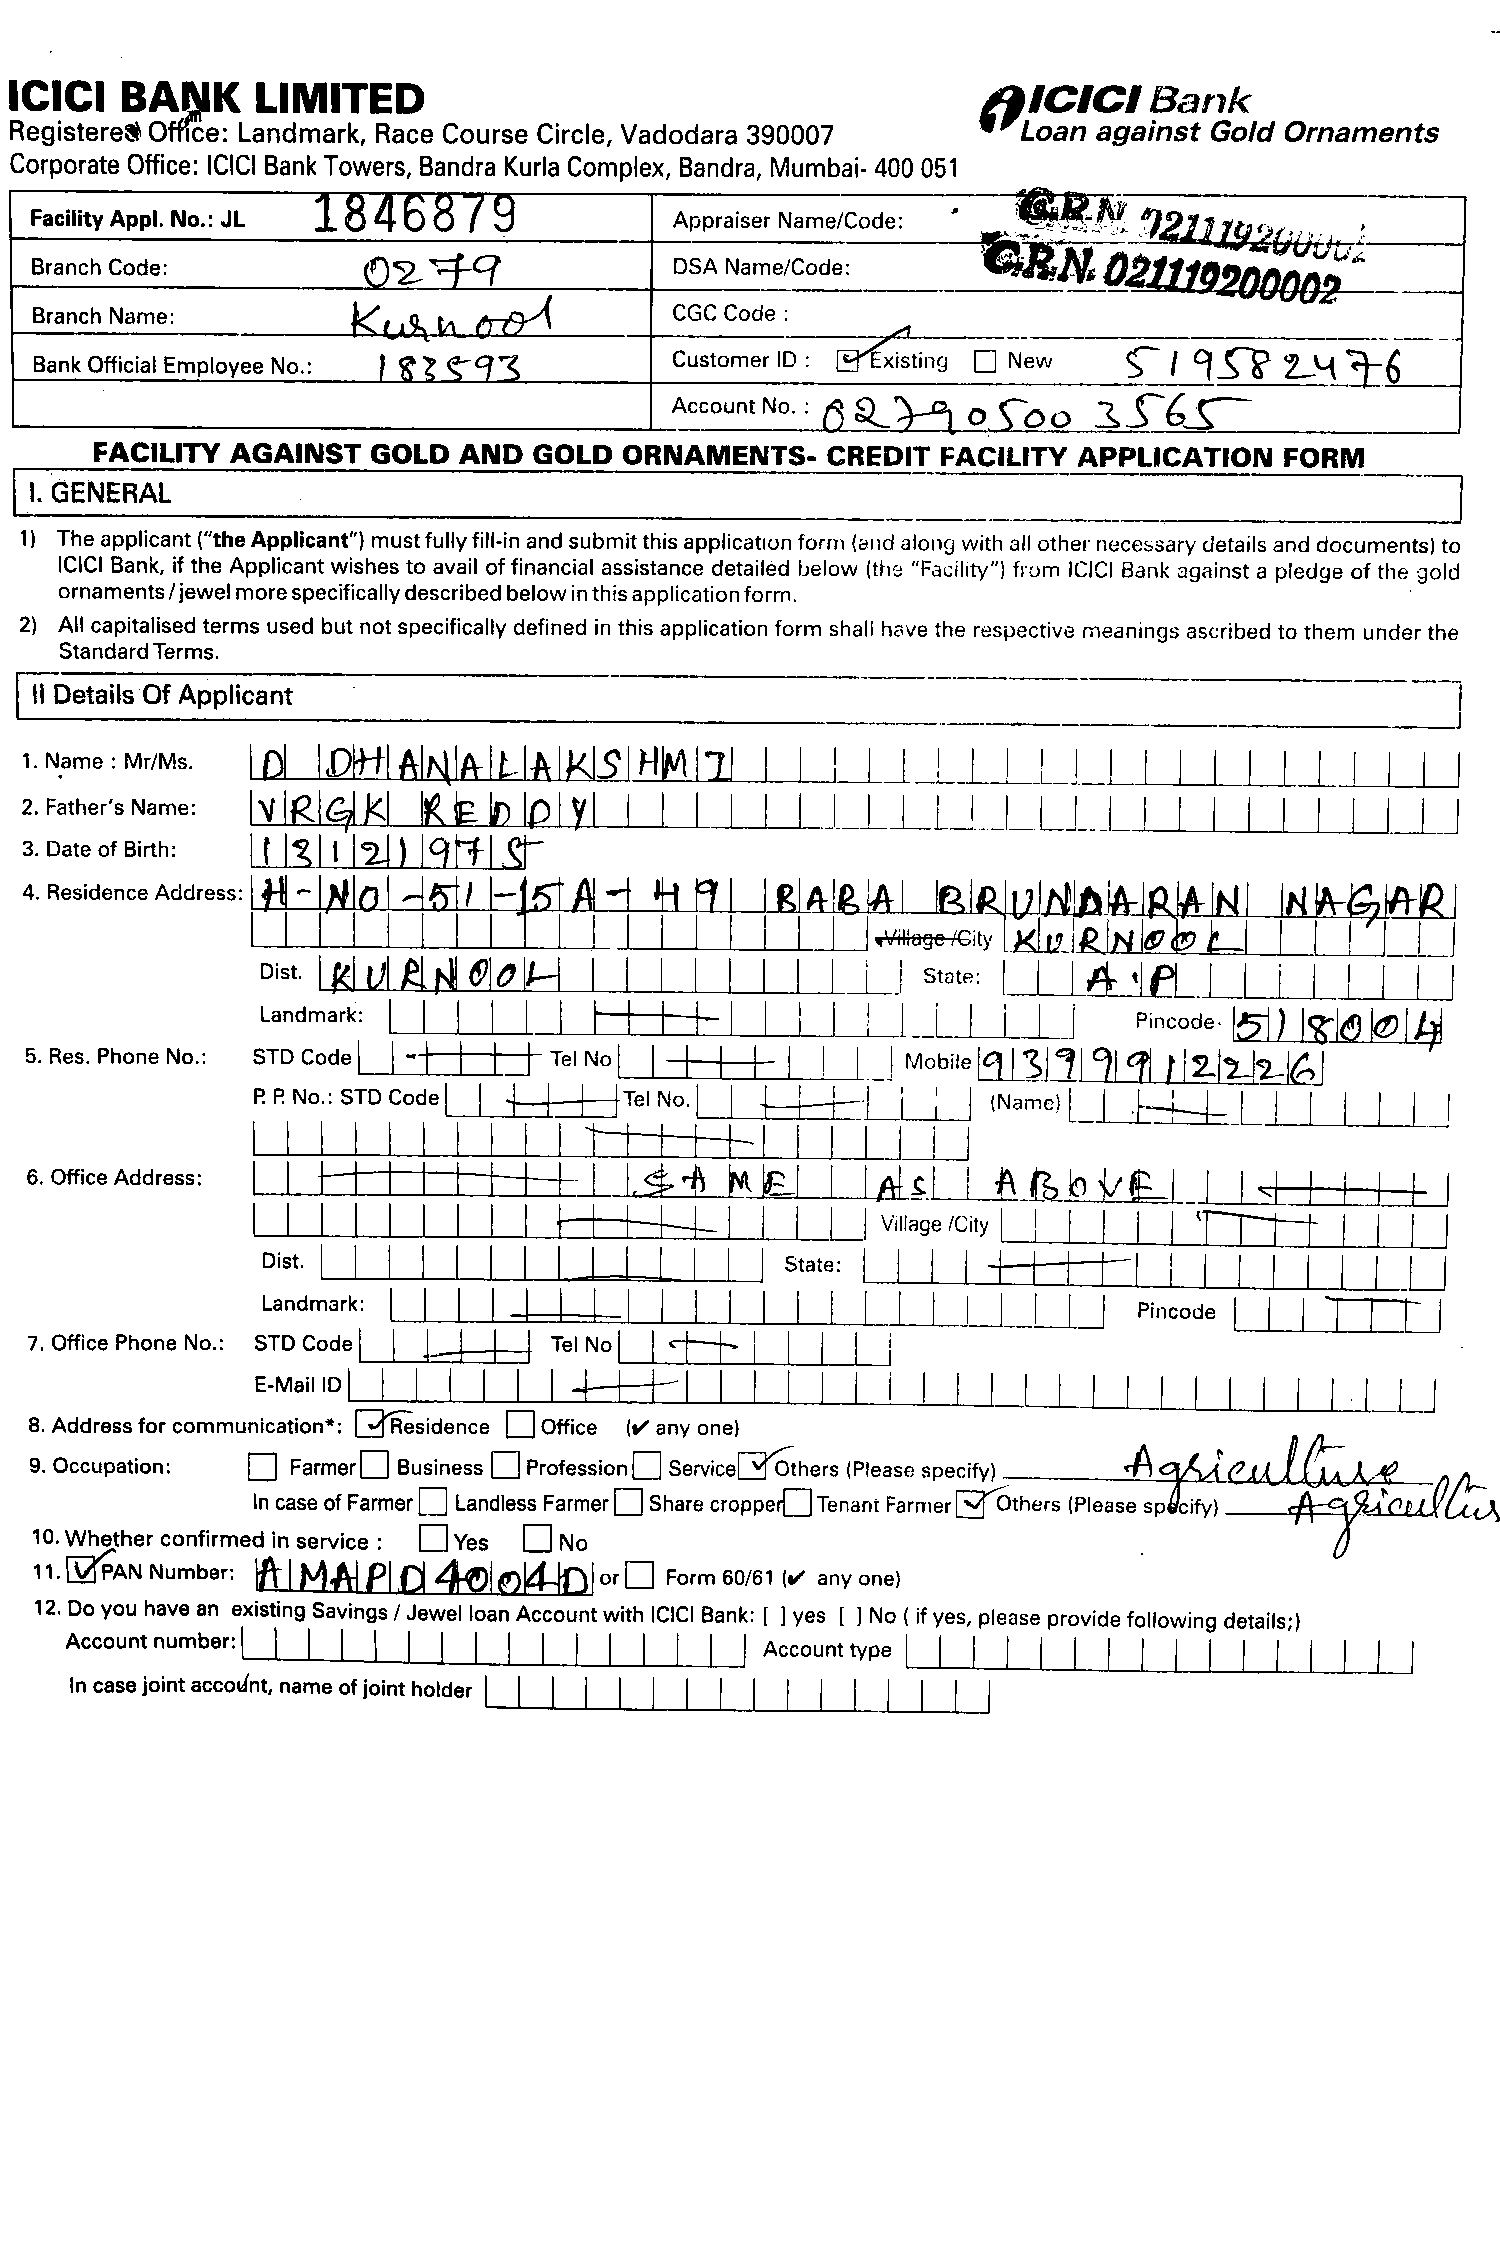 ICICI BANK LIMITED
Registered Office: Landmark, Race Course Circle, Vadodara 390007
Corporate Office: ICICI Bank Towers, Bandra Kurla Complex, Bandra, Mumbai- 400 051
ICICI Bank
Loan against Gold Ornaments
Facility Appl. No.: JL 1846879
Appraiser Name/Code: G.R.N. 021119200002
Branch Code: 0279
DSA Name/Code: G.R.N. 021119200002
Branch Name: Kurnool
CGC Code :
Bank Official Employee No.: 183593
Customer ID : ☑ Existing ☐ New 519582476
Account No. : 027905003565
FACILITY AGAINST GOLD AND GOLD ORNAMENTS- CREDIT FACILITY APPLICATION FORM
I. GENERAL
1) The applicant ("the Applicant") must fully fill-in and submit this application form (and along with all other necessary details and documents) to
ICICI Bank, if the Applicant wishes to avail of financial assistance detailed below (the "Facility") from ICICI Bank against a pledge of the gold
ornaments / jewel more specifically described below in this application form.
2) All capitalised terms used but not specifically defined in this application form shall have the respective meanings ascribed to them under the
Standard Terms.
II Details Of Applicant
1. Name : Mr/Ms. D DHANALAKSHMI
2. Father's Name: VRGK REDDY
3. Date of Birth: 13121975
4. Residence Address: H-NO-51-15A-49 BABA BRUNDARAN NAGAR
Village /City KURNOOL
Dist. KURNOOL State: A.P
Landmark: Pincode 518004
5. Res. Phone No.: STD Code Tel No Mobile 9399912226
P. P. No.: STD Code Tel No. (Name)
6. Office Address: SAME AS ABOVE
Village /City
Dist. State:
Landmark: Pincode
7. Office Phone No.: STD Code Tel No
E-Mail ID
8. Address for communication*: ☑ Residence ☐ Office (✔ any one)
9. Occupation: ☐ Farmer ☐ Business ☐ Profession ☐ Service ☑ Others (Please specify) Agriculture
In case of Farmer ☐ Landless Farmer ☐ Share cropper ☐ Tenant Farmer ☑ Others (Please specify)
10. Whether confirmed in service : ☐ Yes ☐ No
11. ☑ PAN Number: AMAPD4004D or ☐ Form 60/61 (✔ any one)
12. Do you have an existing Savings / Jewel loan Account with ICICI Bank: [ ] yes [ ] No ( if yes, please provide following details;)
Account number: Account type
In case joint account, name of joint holder